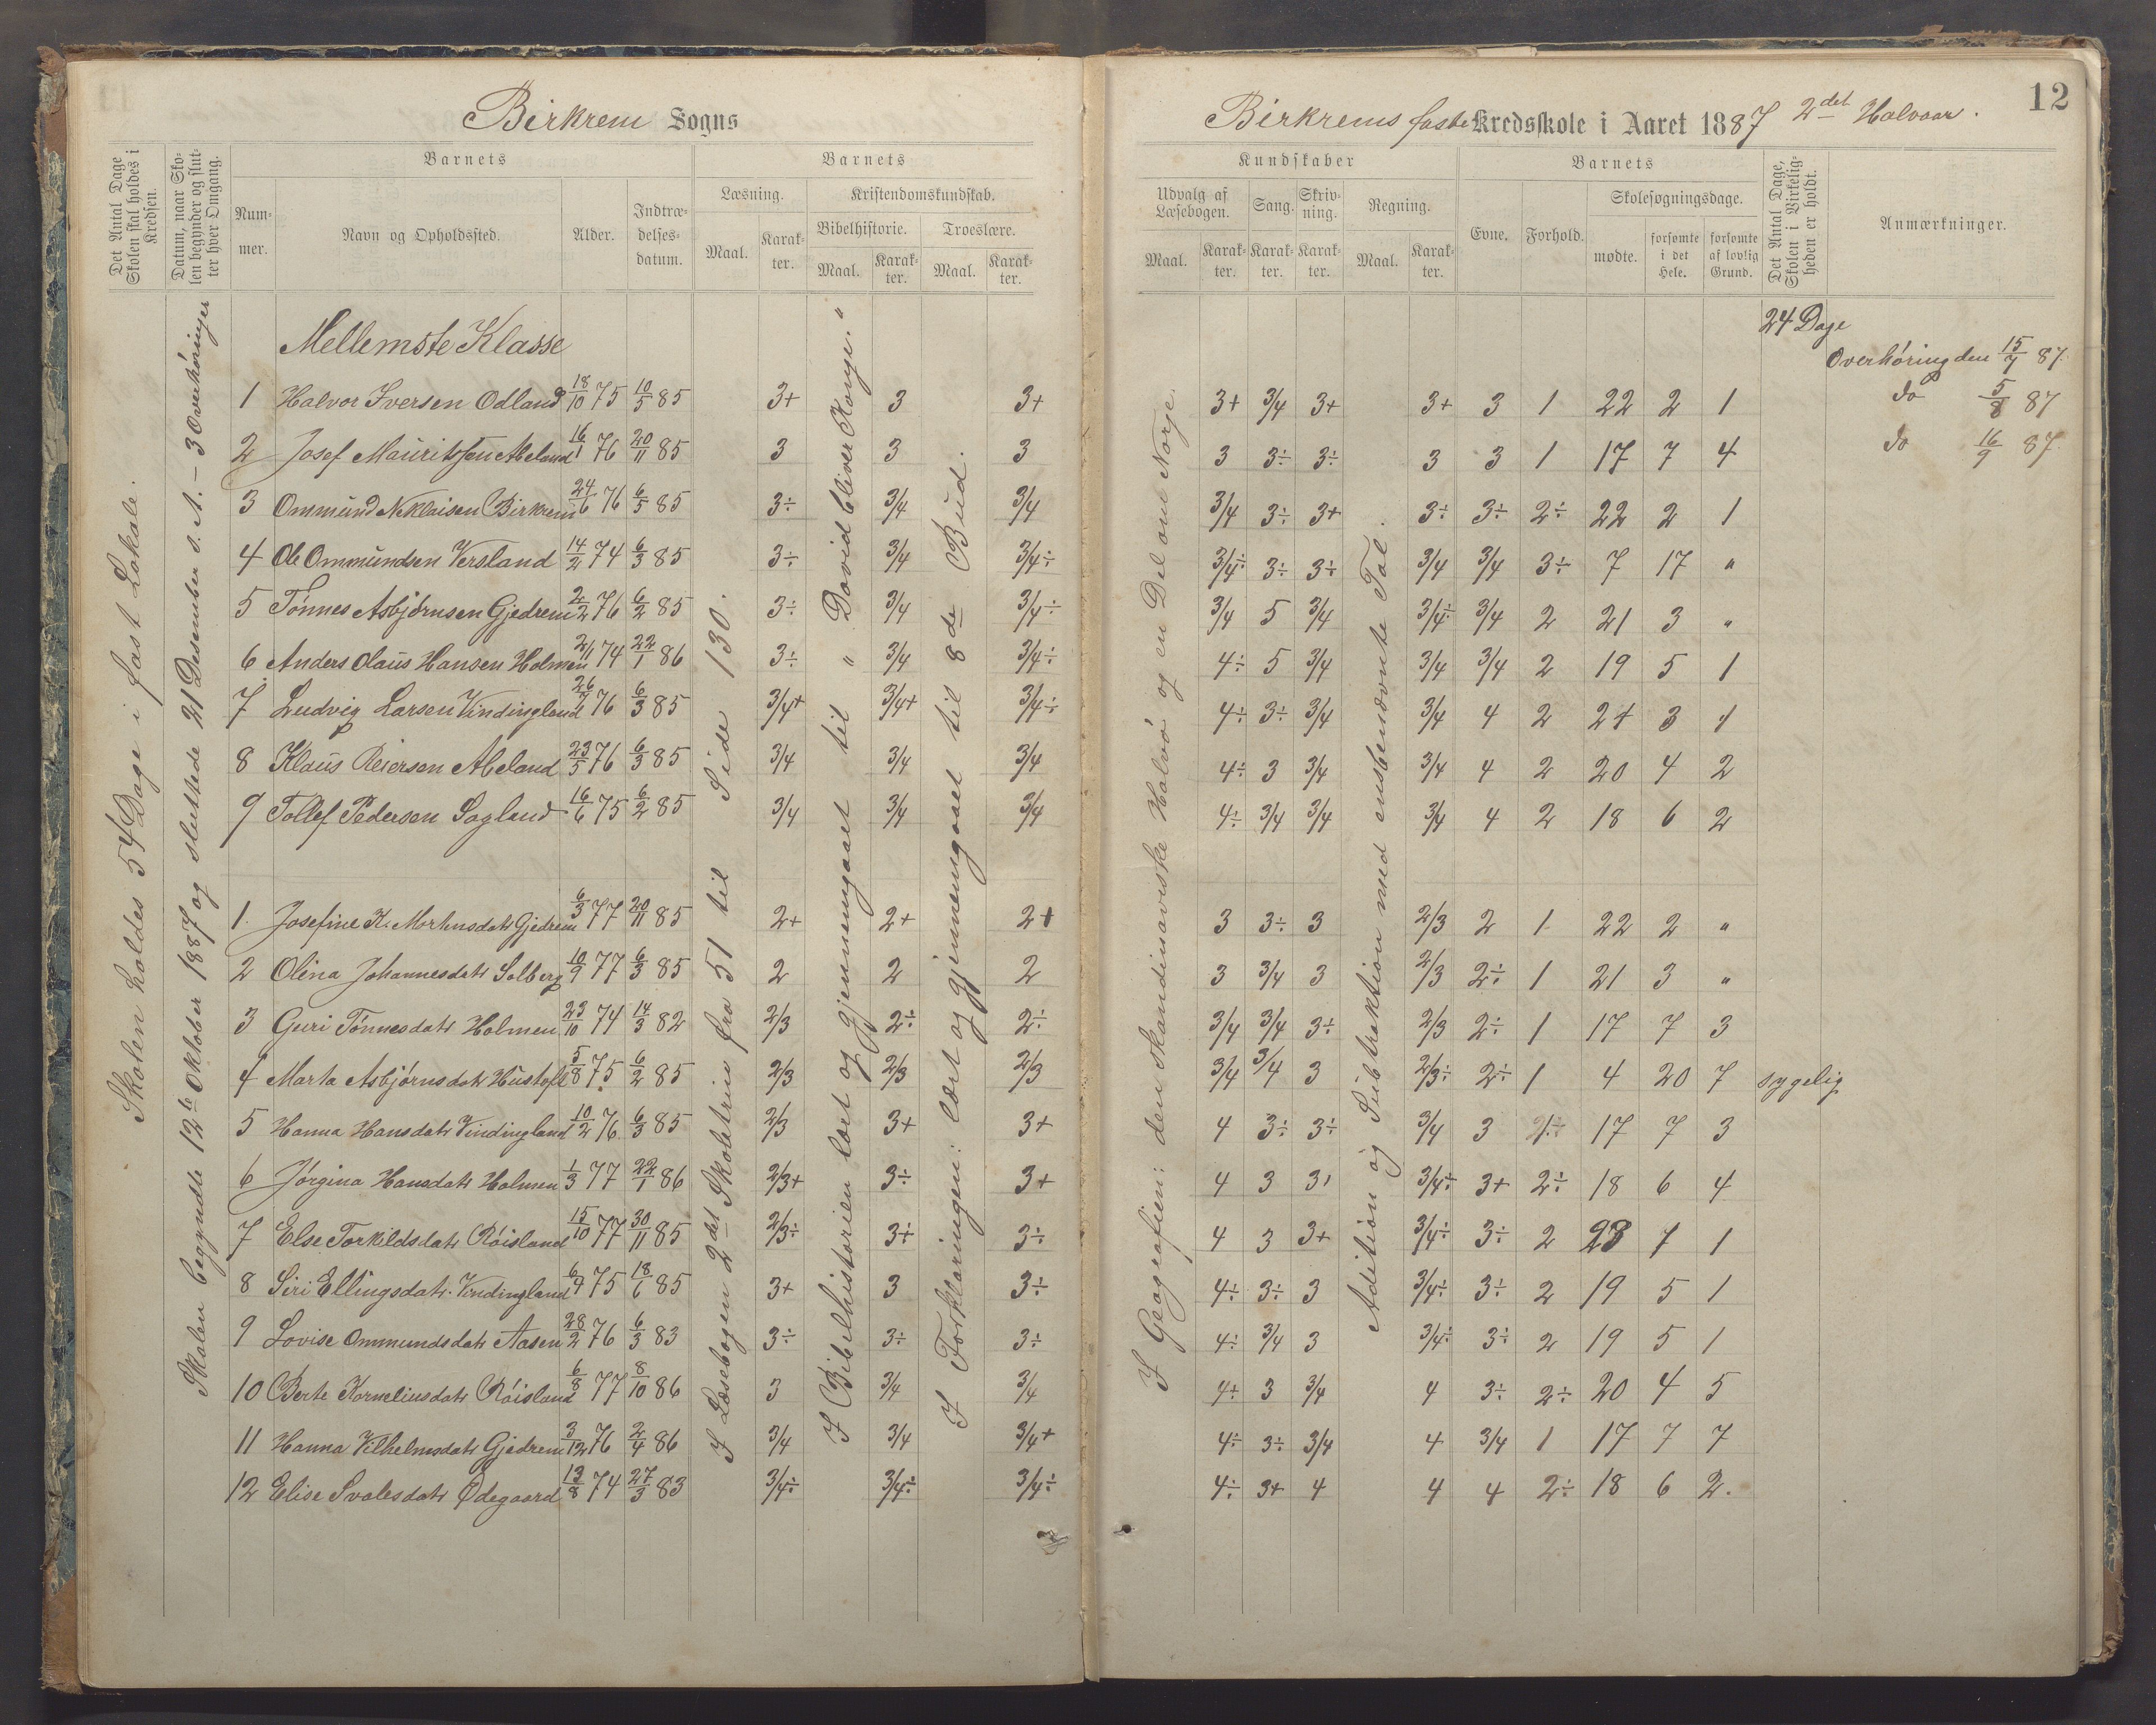 Birkrem Sogns
Det Antal Dage Skolen skal holdes i Kredsen.
Datum, naar Skolen begynder og slutter hver Omgang.
Barnets
Nummer.
Navn og Opholdssted.
Alder.
Indtrædelsesdatum.
Barnets
Læsning.
Maal.
Karakter.
Kristendomskundskab.
Bibelhistorie.
Maal.
Karakter.
Troeslære.
Maal.
Karakter.
Skolen holdes 54 Dage i fast Lokale.
Skolen begyndte 12te Oktober 1887 og sluttede 21 Desember s. A. – 3 Overhøringer
I Læsebogen 2det Skoletrin fra 51 til Side 130.
I Bibelhistorien lært og gjennemgaaet til "David bliver Konge."
I Forklaringen: lært og gjennemgaaet til 8de Bud.
Mellemste Klasse
1 Halvor Iversen Odland 18/10 75 10/5 85 3+ 3 3+
2 Josef Mauritssen Abeland 16/1 76 20/11 85 3 3 3
3 Ommund Neklaisen Birkrem 24/6 76 6/5 85 3÷ 3/4 3/4
4 Ole Ommundsen Versland 14/2 74 6/3 85 3÷ 3/4 3/4÷
5 Tønnes Asbjørnsen Gjedrem 2/2 76 6/2 85 3÷ 3/4 3/4÷
6 Anders Olaus Hansen Holmen 2/11 74 22/1 86 3÷ 3/4 3/4÷
7 Ludvig Larsen Vindingland 26/7 76 6/3 85 3/4+ 3/4+ 3/4÷
8 Klaus Reiersen Abeland 23/5 76 6/3 85 3/4 3/4 3/4
9 Tollef Pedersen Sagland 16/6 75 6/2 85 3/4 3/4 3/4
1. Josefine K. Mortensdatr Gjedrem 6/3 77 20/11 85 2+ 2+ 2+
2 Olina Johannesdatr Solberg 10/9 77 6/3 85 2 2 2
3 Guri Tønnesdatr Holmen 23/10 74 14/3 82 2/3 2÷ 2÷
4 Marta Asbjørnsdatr Hustoft 5/8 75 6/2 85 2/3 2/3 2/3
5 Hanna Hansdatr Vindingland 10/2 76 6/3 85 2/3 3+ 3+
6 Jørgina Hansdatr Holmen 1/3 77 22/1 86 2/3+ 3÷ 3+
7 Else Torkildsdatr Røisland 15/10 77 30/11 85 2/3÷ 3÷ 3÷
8 Siri Ellingsdatr Vindingland 6/4 75 18/6 85 3+ 3 3÷
9 Lovise Ommundsdatr Aasen 28/2 76 6/3 83 3÷ 3÷ 3÷
10 Berte Korneliusdatr Røisland 6/8 77 8/10 86 3 3/4 3/4
11 Hanna Vilhelmsdatr Gjedrem 3/12 76 2/4 86 3/4 3/4 3/4+
12 Elise Svalesdatr Ødegaard 13/8 74 27/3 83 3/4÷ 3/4÷ 3/4÷
12
Birkrems faste Kredsskole i Aaret 1887 2det Halvaar.
Kundskaber
Udvalg af Læsebogen.
Maal.
Karakter.
Sang.
Karakter.
Skrivning.
Karakter.
Regning.
Maal.
Karakter.
Barnets
Evne.
Forhold.
Skolesøgningsdage.
mødte.
forsømte i det Hele.
forsømte af lovlig Grund.
Det Antal Dage, Skolen i Virkeligheden er holdt.
Anmærkninger.
I Geografien: den skandinaviske Halvø og en Del om Norge.
Adition og Subtraktion med ensbenævnte Tal.
24 Dage
Overhøring den 15/7 87.
3+ 3/4 3+ 3+ 3 1 22 2 1 do 5/8 87
3 3÷ 3÷ 3 3 1 17 7 4 do 16/9 87
3/4 3÷ 3+ 3÷ 3÷ 2÷ 22 2 1
3/4÷ 3÷ 3÷ 3/4 3/4 3÷ 7 17 "
3/4 5 3/4 3/4÷ 3/4 2 21 3 "
4÷ 5 3/4 3/4 3/4 2 19 5 1
4÷ 3÷ 3/4 3/4 4 2 21 3 1
4÷ 3 3/4 3/4 4 2 20 4 2
4÷ 3/4 3/4 3/4 4 2 18 6 2
3 3÷ 3 2/3 2 1 22 2 "
3 3/4 3 2/3 2÷ 1 21 3 "
3/4 3/4 3÷ 2/3 2÷ 1 17 7 3
3/4 3/4 3 2/3÷ 2÷ 1 4 20 7 sygelig
4 3÷ 3÷ 3/4 3 2÷ 17 7 3
4 3 3+ 3/4÷ 3+ 2÷ 18 6 4
4 3 3+ 3/4÷ 3÷ 2 23 1 1
4÷ 3÷ 3 3/4÷ 3÷ 2 19 5 1
4÷ 3/4 3 3/4÷ 3÷ 2 19 5 1
4÷ 3 3/4 4 3÷ 2÷ 20 4 5
4÷ 3÷ 3/4 4 3/4 1 17 7 7
4÷ 3+ 4 4 4 2÷ 18 6 2.